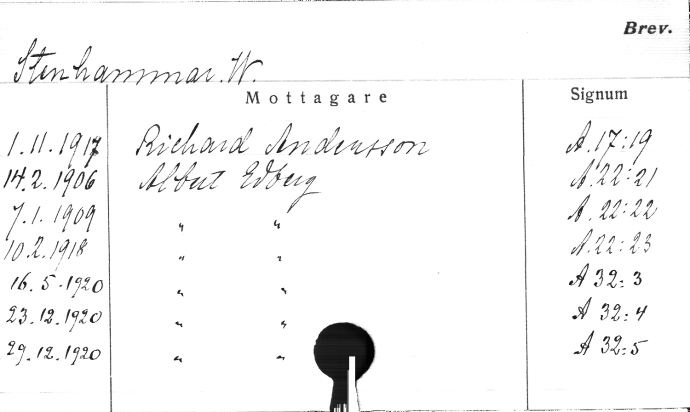 Brev.
Stenhammar. W.
Mottagare Signum
1.11.1917 Richard Andersson A.17:19
14.2.1906 Albert Edberg A.22:21
7.1.1909 " " A.22:22
10.2.1918 " " A.22:23
16.5.1920 " " A 32:3
23.12.1920 " " A 32:4
29.12.1920 " " A 32:5